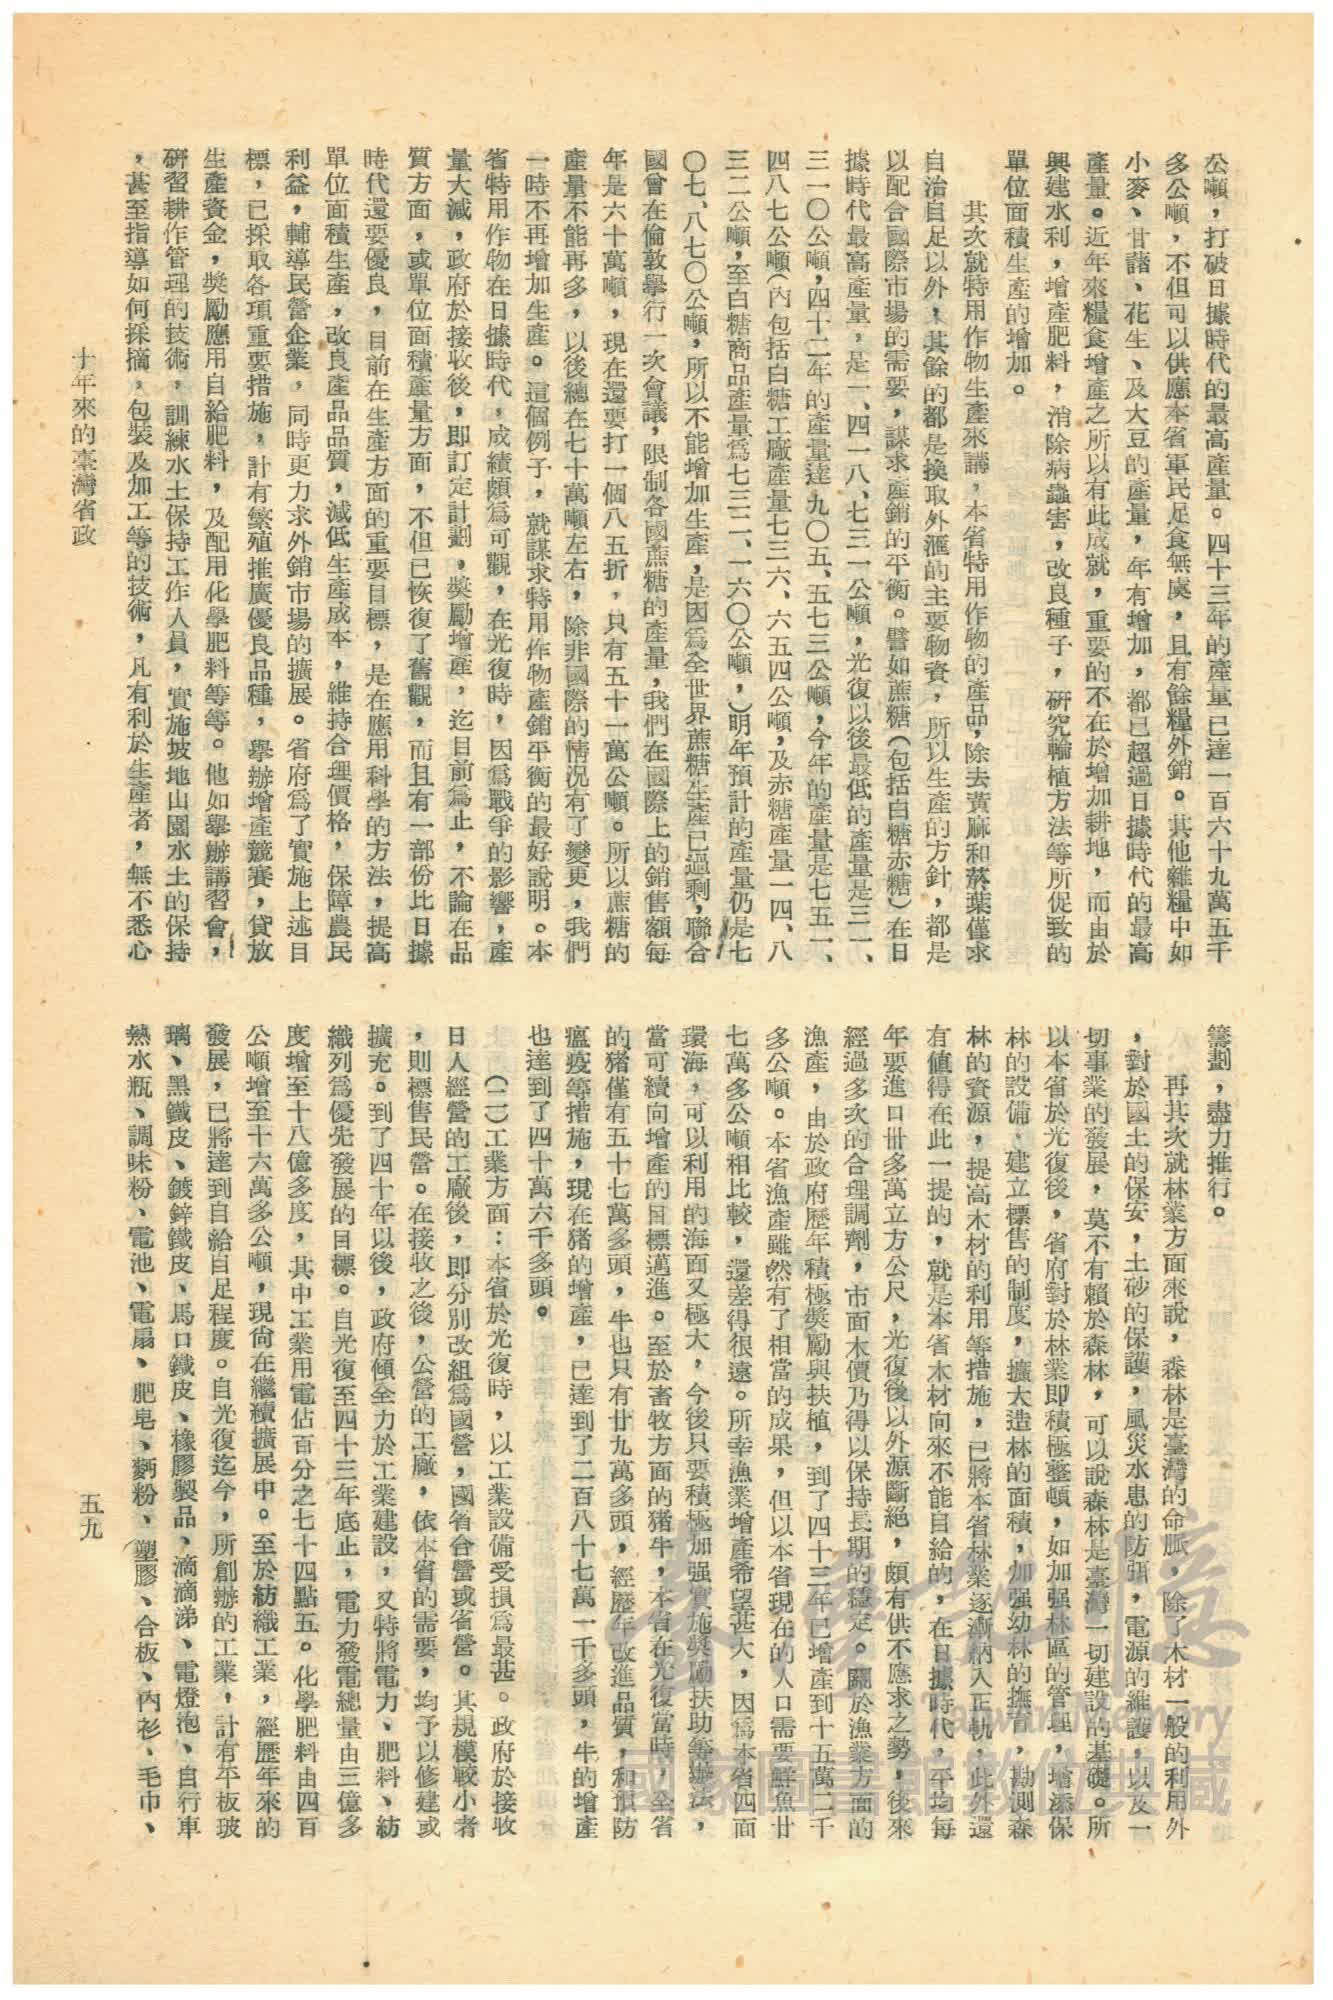 公噸，打破日據時代的最高產量。四十三年的產量已達一百六十九萬五千
多公噸，不但可以供應本省軍民足食無虞，且有餘糧外銷。其他雜糧中如
小麥、甘藷、花生、及大豆的產量，年有增加，都已超過日據時代的最高
產量。近年來糧食增產之所以有此成就，重要的不在於增加耕地，而由於
興建水利，增產肥料，消除病蟲害，改良種子，研究輪植方法等所促致的
單位面積生產的增加。
其次就特用作物生產來講，本省特用作物的產品，除去黃麻和菸葉僅求
自治自足以外，其餘的都是換取外滙的主要物資，所以生產的方針，都是
以配合國際市場的需要，謀求產銷的平衡。譬如蔗糖（包括白糖赤糖）在日
據時代最高產量，是一、四一八、七三一公噸，光復以後最低的產量是三一、
三一〇公噸，四十二年的產量達九〇五、五七三公噸，今年的產量是七五一、
四八七公噸（內包括白糖工廠產量七三六、六五四公噸，及赤糖產量一四、八
三二公噸，至白糖商品產量爲七三二、一六〇公噸，）明年預計的產量仍是七
〇七、八七〇公噸，所以不能增加生產，是因爲全世界蔗糖生產已過剩，聯合
國曾在倫敦舉行一次會議，限制各國蔗糖的產量，我們在國際上的銷售額每
年是六十萬噸，現在還要打一個八五折，只有五十一萬公噸。所以蔗糖的
產量不能再多，以後總在七十萬噸左右，除非國際的情況有了變更，我們
一時不再增加生產。這個例子，就謀求特用作物產銷平衡的最好說明。本
省特用作物在日據時代，成績頗爲可觀，在光復時，因爲戰爭的影響，產
量大減，政府於接收後，即訂定計劃，獎勵增產，迄目前爲止，不論在品
質方面，或單位面積產量方面，不但已恢復了舊觀，而且有一部份比日據
時代還要優良，目前在生產方面的重要目標，是在應用科學的方法，提高
單位面積生產，改良產品品質，減低生產成本，維持合理價格，保障農民
利益，輔導民營企業，同時更力求外銷市場的擴展。省府爲了實施上述目
標，已採取各項重要措施，計有繁殖推廣優良品種，舉辦增產競賽，貸放
生產資金，獎勵應用自給肥料，及配用化學肥料等等。他如舉辦講習會，
硏習耕作管理的技術，訓練水土保持工作人員，實施坡地山園水土的保持
，甚至指導如何採摘，包裝及加工等的技術，凡有利於生產者，無不悉心
籌劃，盡力推行。
再其次就林業方面來說，森林是臺灣的命脈，除了木材一般的利用外
，對於國土的保安，土砂的保護，風災水患的防顭，電源的維護，以及一
切事業的發展，莫不有賴於森林，可以說森林是臺灣一切建設的基礎。所
以本省於光復後，省府對於林業即積極整頓，如加强林區的管理，增添保
林的設備，建立標售的制度，擴大造林的面積，加强幼林的撫育，勘測森
林的資源，提高木材的利用等措施，已將本省林業逐漸納入正軌，此外還
有値得在此一提的，就是本省木材向來不能自給的，在日據時代，平均每
年要進口卅多萬立方公尺，光復後以外源斷絕，頗有供不應求之勢，後來
經過多次的合理調劑，市面木價乃得以保持長期的穩定。關於漁業方面的
漁產，由於政府歷年積極獎勵與扶植，到了四十三年已增產到十五萬二千
多公噸。本省漁產雖然有了相當的成果，但以本省現在的人口需要鮮魚廿
七萬多公噸相比較，還差得很遠。所幸漁業增產希望甚大，因爲本省四面
環海，可以利用的海面又極大，今後只要積極加强實施獎勵扶助等辦法，
當可續向增產的目標邁進。至於畜牧方面的猪牛，本省在光復當時，全省
的猪僅有五十七萬多頭，牛也只有廿九萬多頭，經歷年改進品質，和預防
瘟疫等措施，現在猪的增產，已達到了二百八十七萬一千多頭，牛的增產
也達到了四十萬六千多頭。
（二）工業方面：本省於光復時，以工業設備受損爲最甚。政府於接收
日人經營的工廠後，即分別改組爲國營，國省合營或省營。其規模較小者
，則標售民營。在接收之後，公營的工廠，依本省的需要，均予以修建或
擴充。到了四十年以後，政府傾全力於工業建設，又特將電力、肥料、紡
織列爲優先發展的目標。自光復至四十三年底止，電力發電總量由三億多
度增至十八億多度，其中工業用電佔百分之七十四點五。化學肥料由四百
公噸增至十六萬多公噸，現尙在繼續擴展中。至於紡織工業，經歷年來的
發展，已將達到自給自足程度。自光復迄今，所創辦的工業，計有平板玻
璃、黑鐵皮、鍍鋅鐵皮、馬口鐵皮、橡膠製品、滴滴涕、電燈泡、自行車
熱水瓶、調味粉、電池、電扇、肥皂、麪粉、塑膠、合板、內衫、毛巾、
十年來的臺灣省政
五九
臺灣記憶
Taiwan Memory
國家圖書館數位典藏